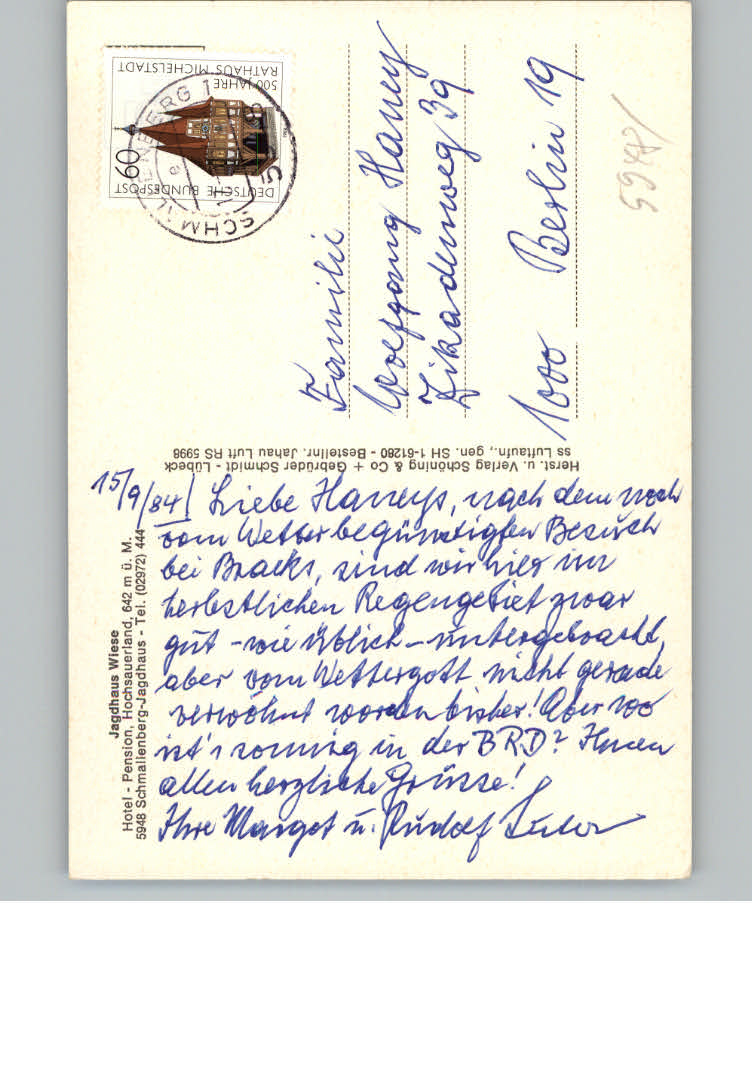 Jagdhaus Wiese
Hotel - Pension, Hochsauerland, 642 m ü. M.
5948 Schmallenberg-Jagdhaus - Tel. (02972) 444
15/9/84 Liebe Haneys, nach dem noch
vom Wetter begünstigten Besuch
bei Bracks, sind wir hier im
herbstlichen Regengebiet zwar
gut - wie üblich - untergebracht,
aber vom Wettergott nicht gerade
verwöhnt worden bisher! Aber wo
ist's sonnig in der BRD? Ihnen
allen herzliche Grüsse!
Ihre Margot u. Rudolf
Herst. u. Verlag Schöning & Co + Gebrüder Schmidt - Lübeck
ss Luftaufn., gen. SH 1-61280 - Bestellnr. Jahau Luft RS 5998
DEUTSCHE BUNDESPOST
60
500 JAHRE
RATHAUS MICHELSTADT
SCHMALLENBERG 1
5948
Familie
Wolfgang Haney
Zikadenweg 39
1000 Berlin 19
5948/